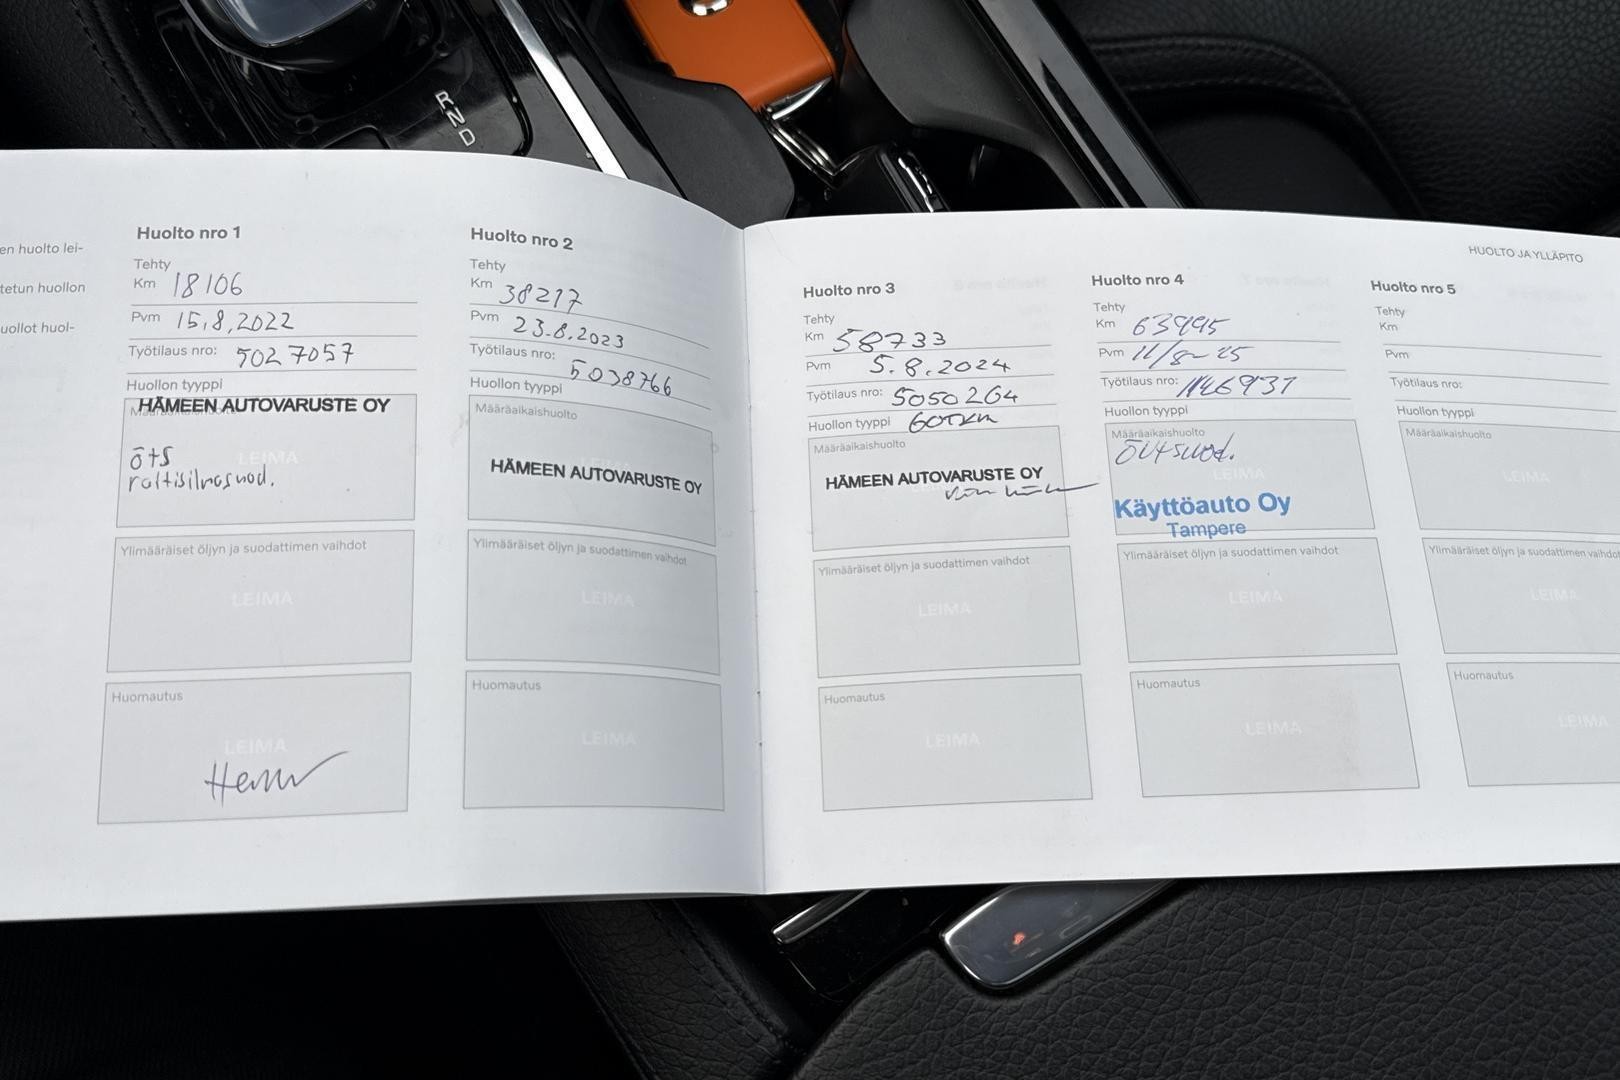 R
N
D
en huolto lei-
tetun huollon
uollot huol-
Huolto nro 1
Tehty
Km 18106
Pvm 15.8.2022
Työtilaus nro: 5027057
Huollon tyyppi
HÄMEEN AUTOVARUSTE OY
LEIMA
Ylimääräiset öljyn ja suodattimen vaihdot
LEIMA
Huomautus
LEIMA
Huolto nro 2
Tehty
Km 38217
Pvm 23.8.2023
Työtilaus nro: 5038766
Huollon tyyppi
Määräaikaishuolto
HÄMEEN AUTOVARUSTE OY
Ylimääräiset öljyn ja suodattimen vaihdot
LEIMA
Huomautus
LEIMA
HUOLTO JA YLLÄPITO
Huolto nro 3
Tehty
Km 58733
Pvm 5.8.2024
Työtilaus nro: 5050264
Huollon tyyppi 60Tkm
Määräaikaishuolto
HÄMEEN AUTOVARUSTE OY
Ylimääräiset öljyn ja suodattimen vaihdot
LEIMA
Huomautus
LEIMA
Huolto nro 4
Tehty
Km 63995
Pvm 11/8-25
Työtilaus nro:
Huollon tyyppi
Määräaikaishuolto
LEIMA
Käyttöauto Oy
Tampere
Ylimääräiset öljyn ja suodattimen vaihdot
LEIMA
Huomautus
LEIMA
Huolto nro 5
Tehty
Km
Pvm
Työtilaus nro:
Huollon tyyppi
Määräaikaishuolto
LEIMA
Ylimääräiset öljyn ja suodattimen vaihdot
LEIMA
Huomautus
LEIMA